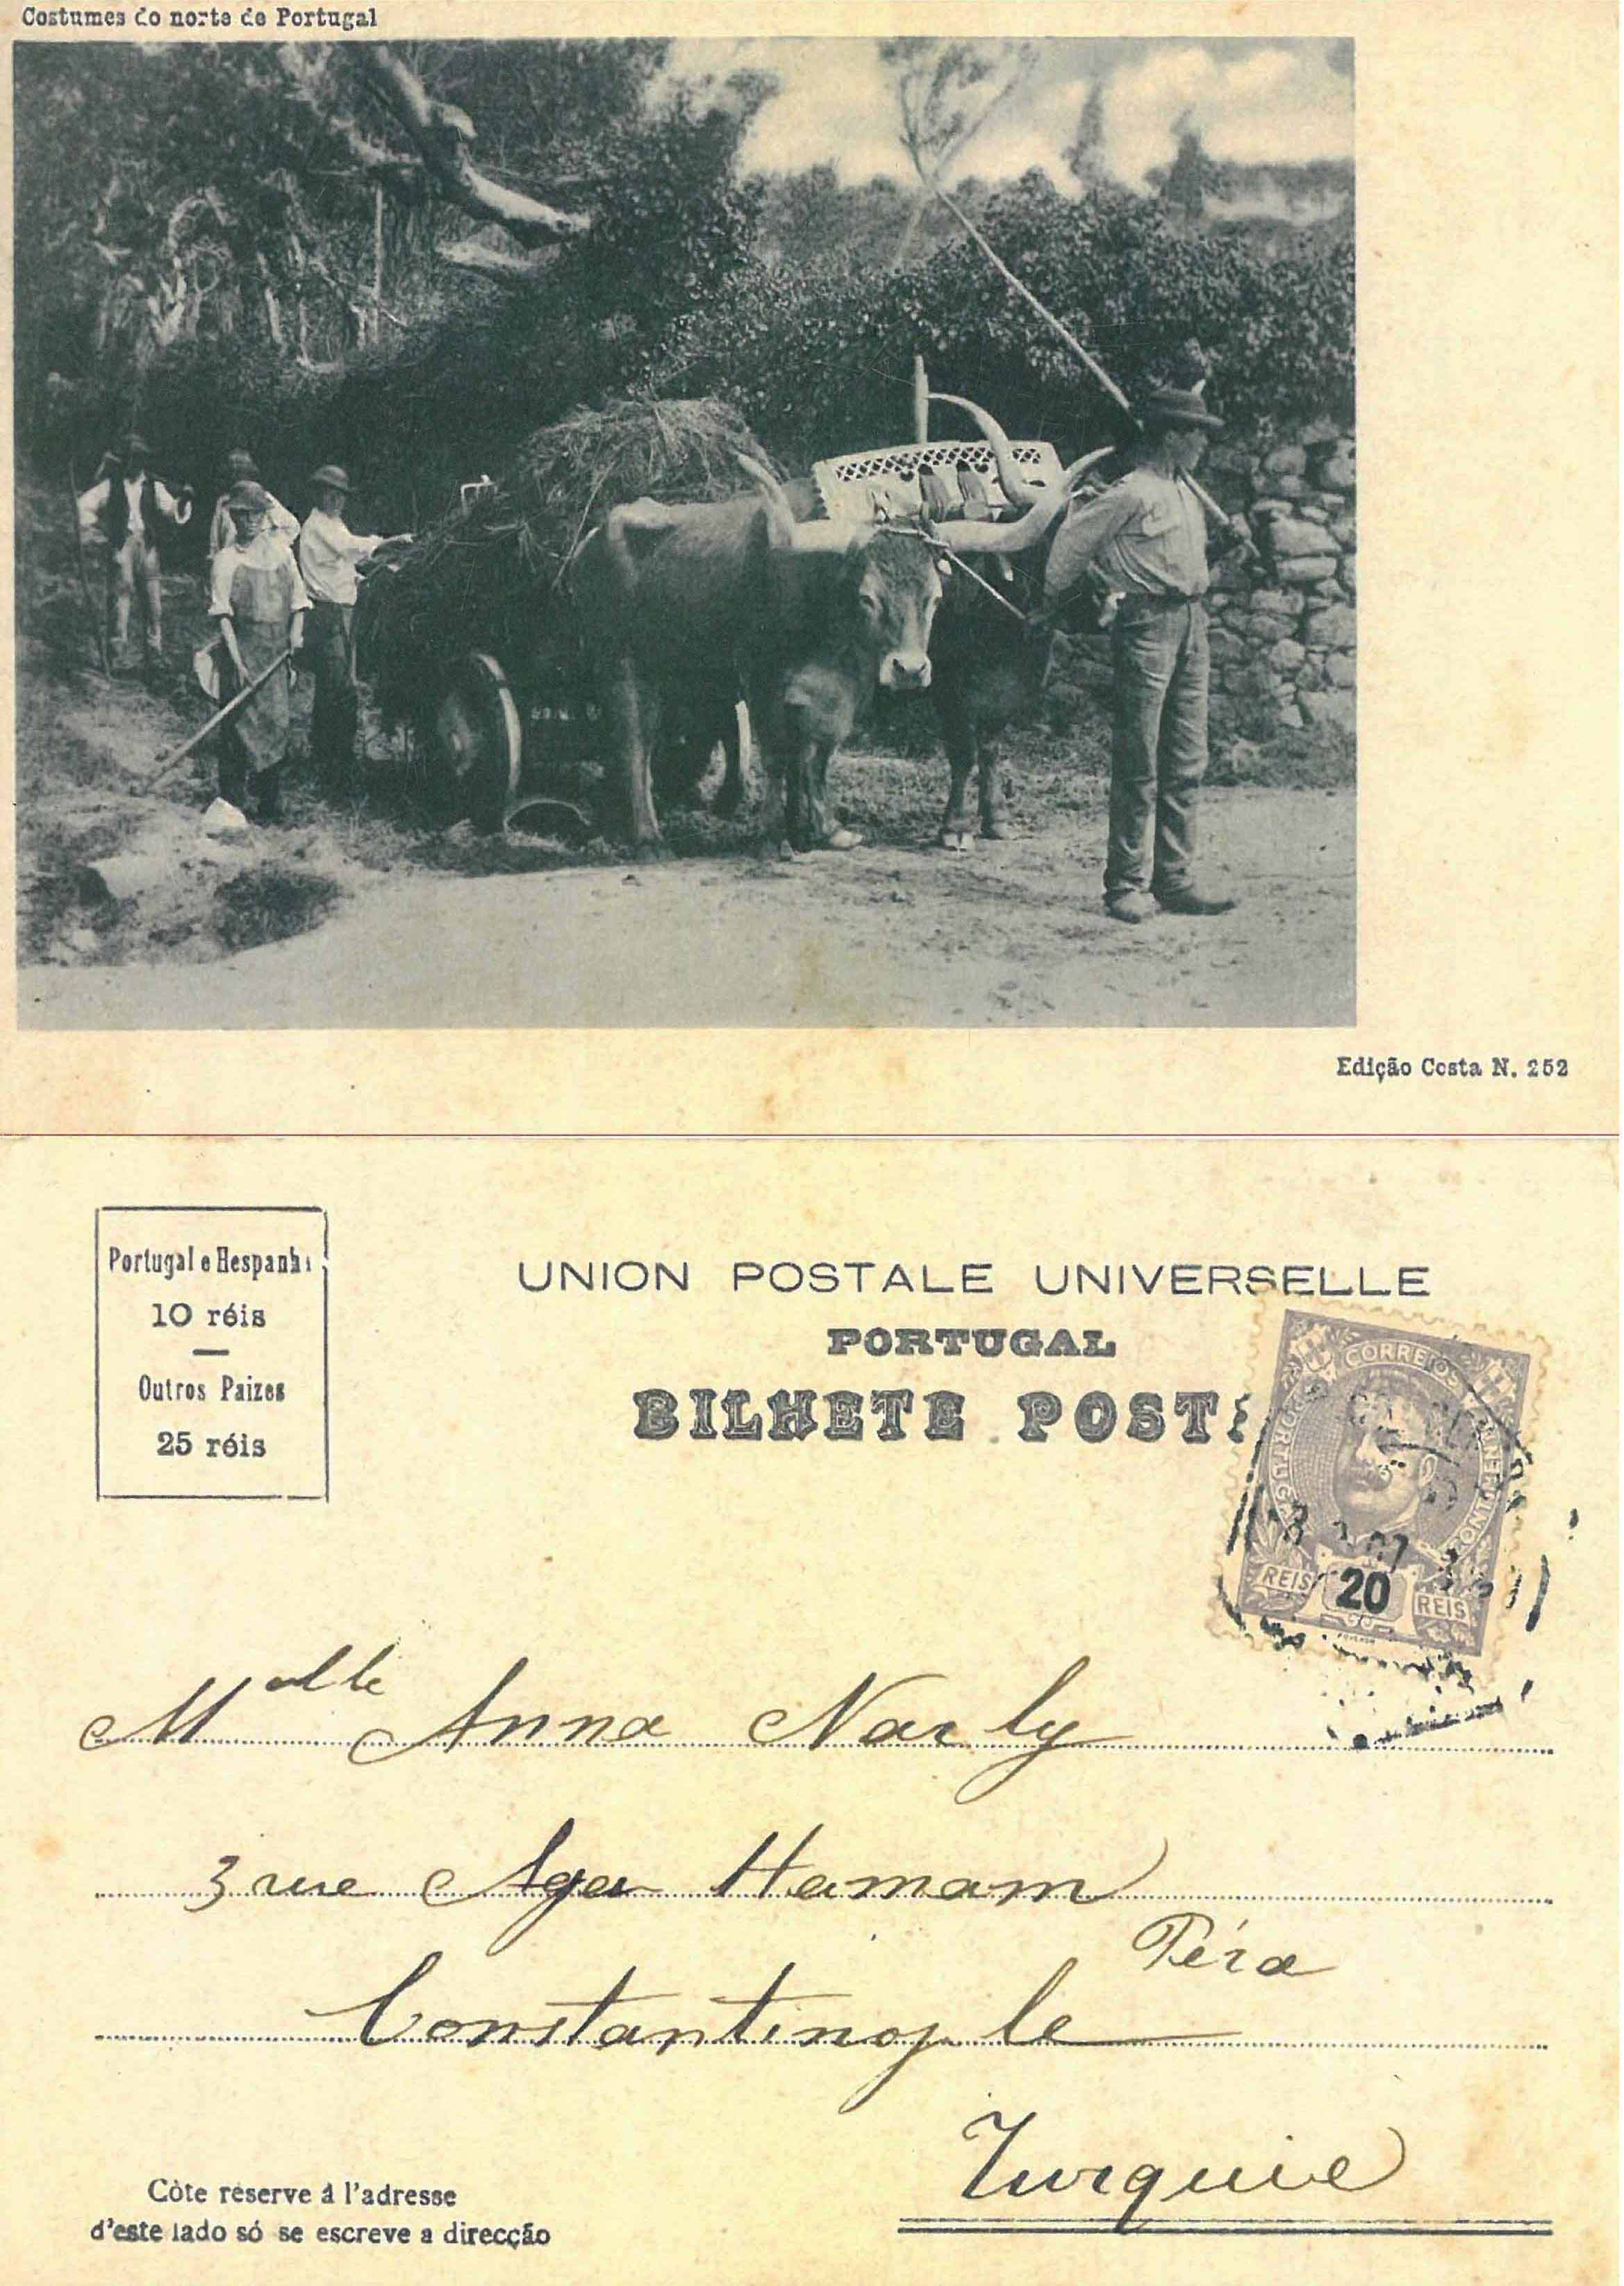 Costumes do norte de Portugal
Edição Costa N. 252
Portugal e Hespanha
10 réis
Outros Paizes
25 réis
UNION POSTALE UNIVERSELLE
PORTUGAL
BILHETE POST
CORREIOS
PORTUGAL
CONTINENTE
REIS 20 REIS
Melle Anna Narly
3 rue Aga Hamam
Péra
Constantinople
Turquie
Côte réserve á l'adresse
d'este lado só se escreve a direcção